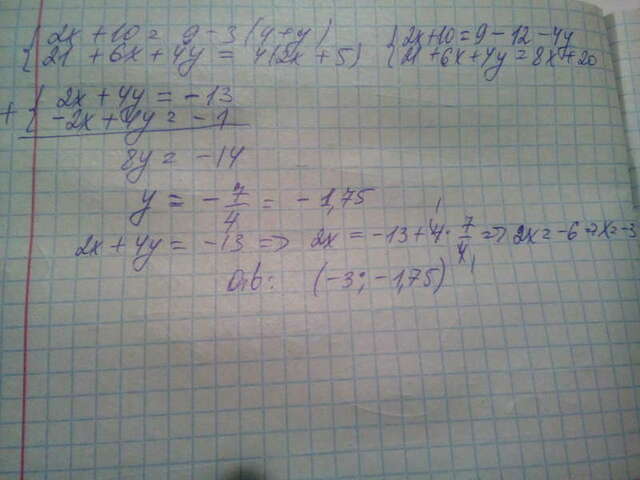 {2x + 10 = 9 - 3(4+y) {2x+10=9-12-4y
{21 + 6x + 4y = 4(2x + 5) {21+6x+4y=8x+20
+ { 2x + 4y = -13
{ -2x + 4y = -1
8y = -14
y = - 7/4 = - 1,75
2x + 4y = -13 => 2x = -13 + 4 · 7/4 => 2x = -6 => x = -3
Отв: (-3; -1,75)